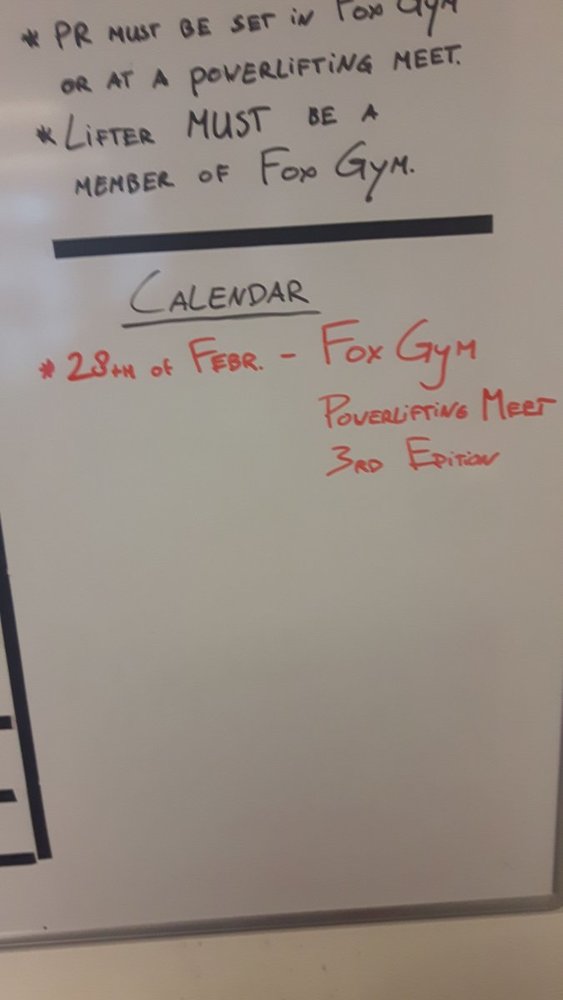 * PR MUST BE SET IN FOX GYM
OR AT A POWERLIFTING MEET.
* LIFTER MUST BE A
MEMBER OF FOX GYM.
CALENDAR
* 28TH OF FEBR. - FOX GYM
POWERLIFTING MEET
3RD EDITION